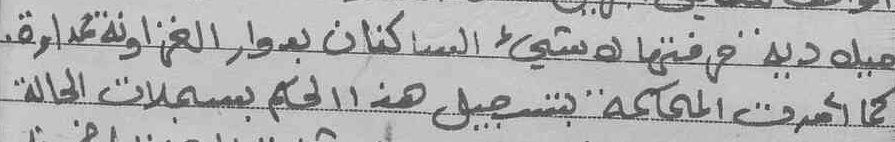 ميلادية حرفتها لا شيء الساكنان بدوار الغزاونة
كما أمرت المحكمة بتسجيل هذا الحكم بسجلات الحالة